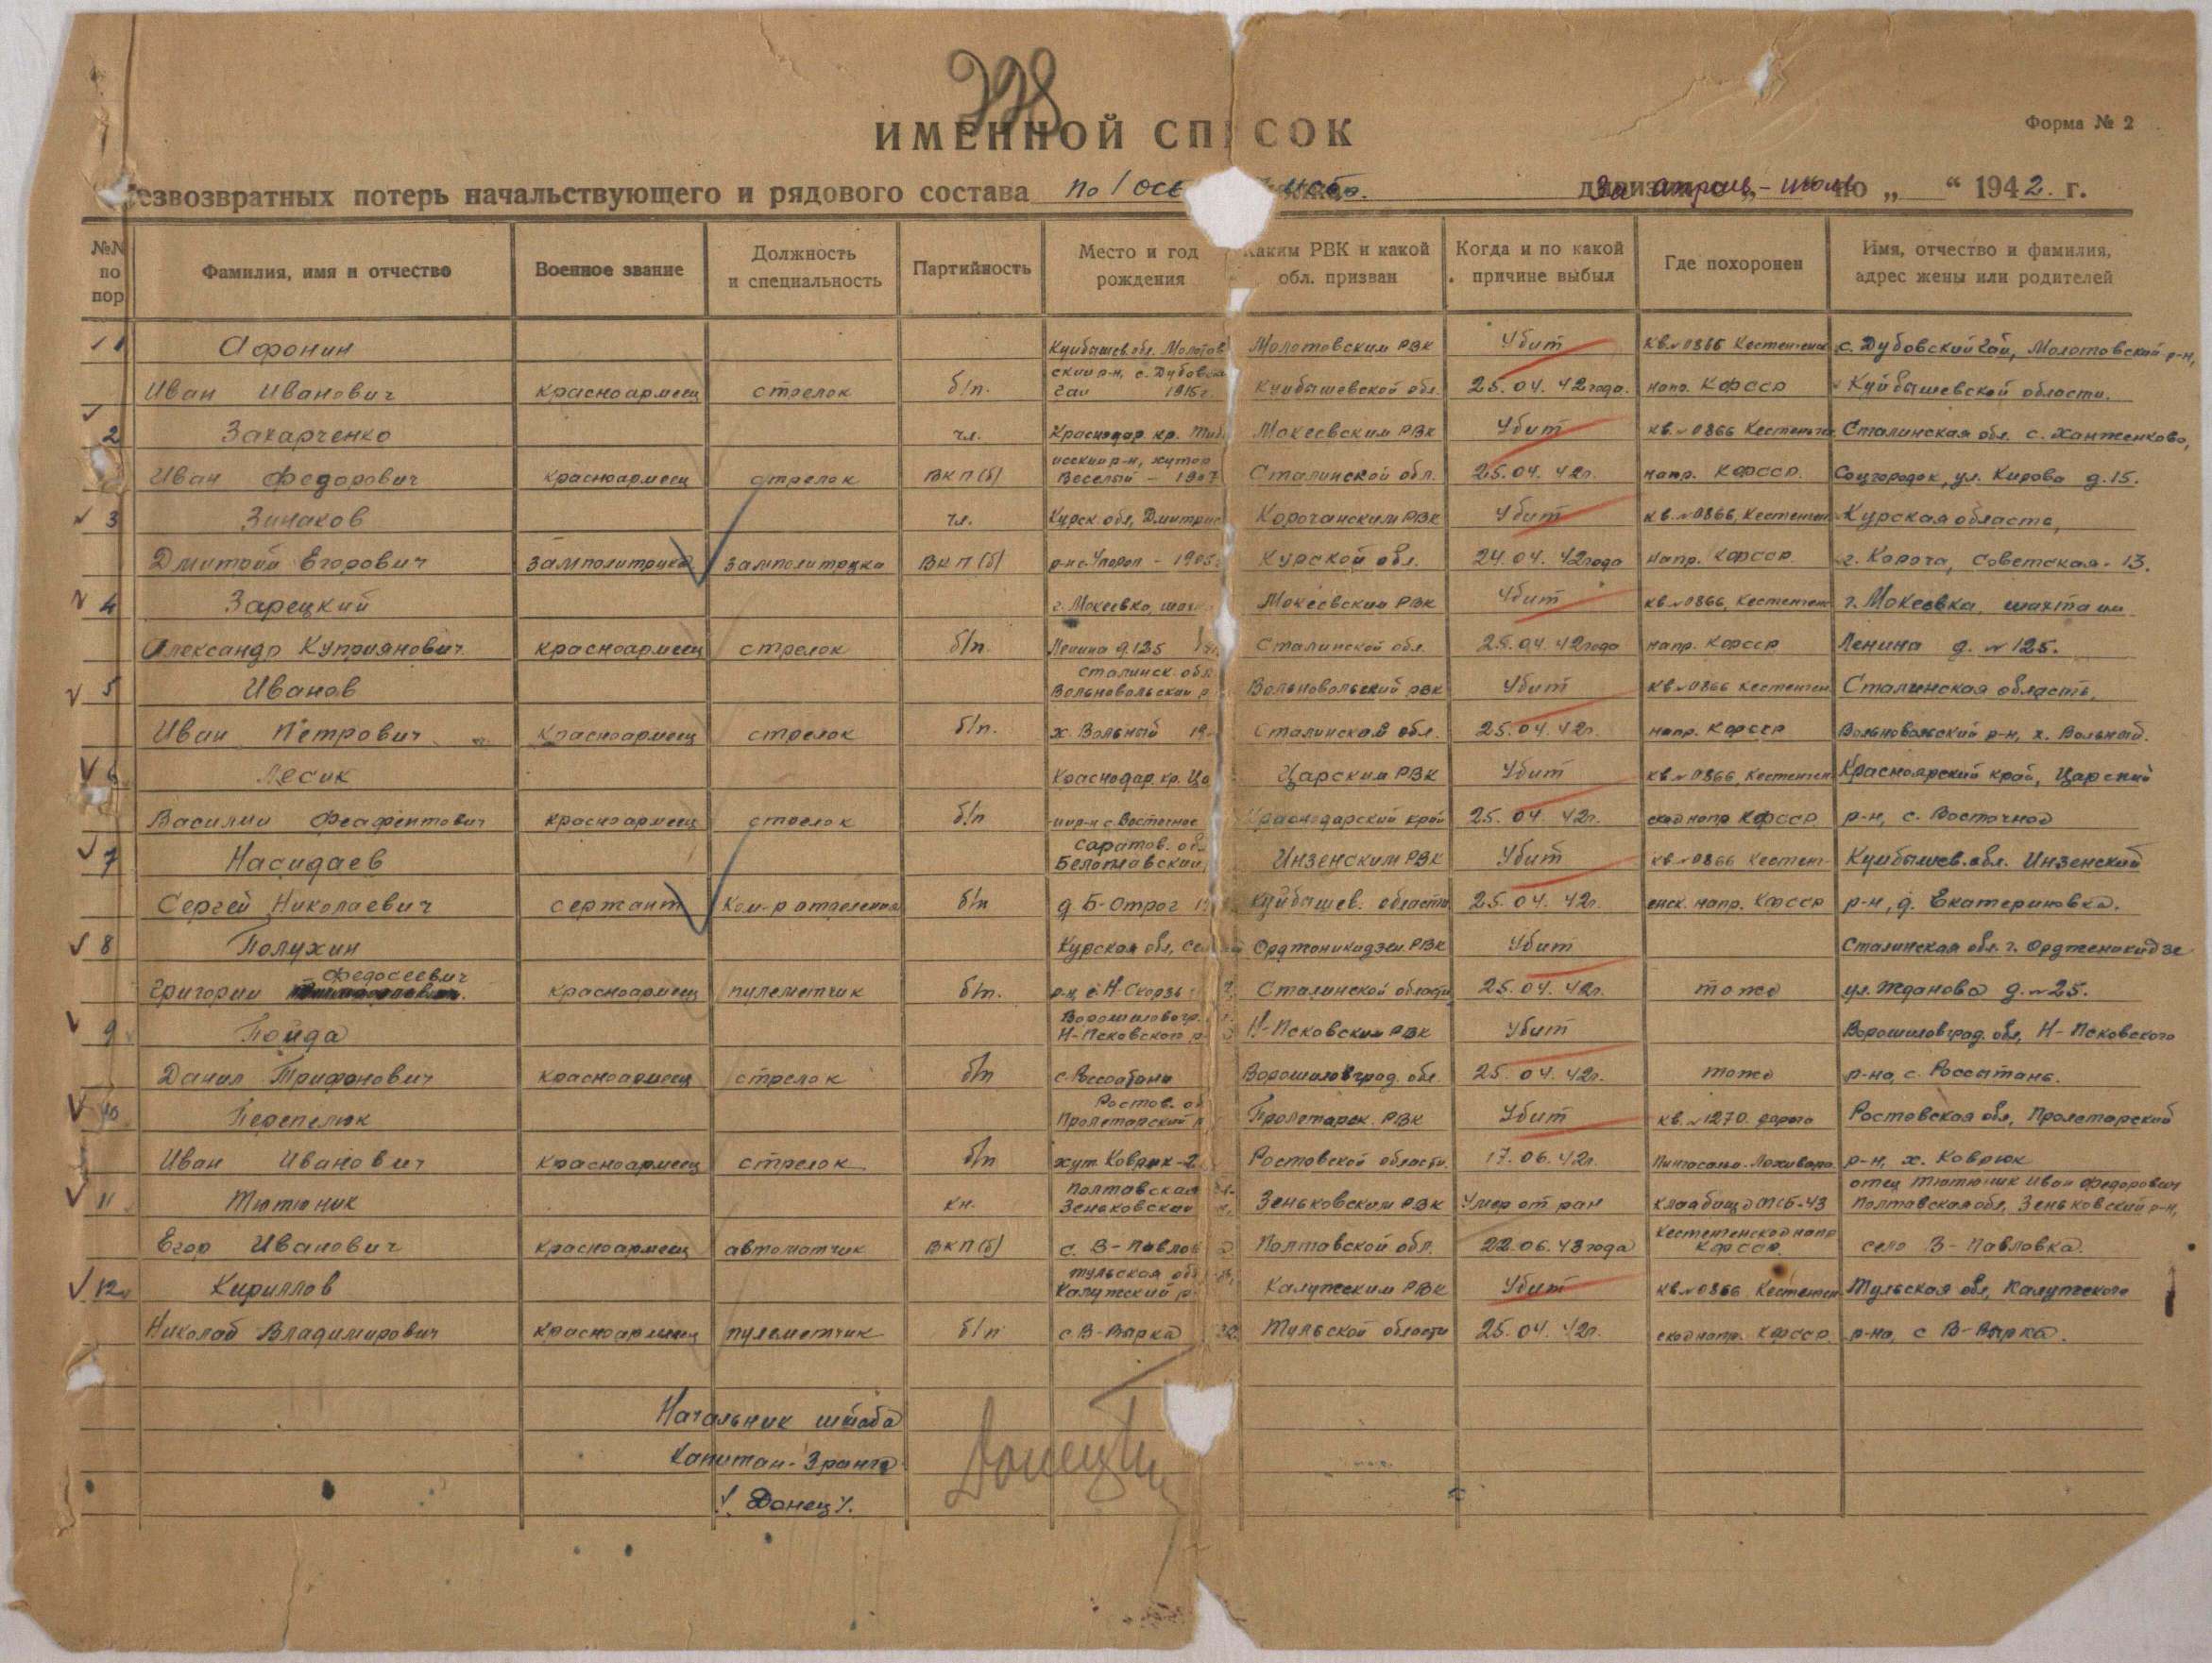 398
ИМЕННОЙ СПИСОК
Форма № 2
безвозвратных потерь начальствующего и рядового состава по 1 осе За апрель - июль по „ “ 1942. г.
№№ по пор.
Фамилия, имя и отчество
Военное звание
Должность и специальность
Партийность
Место и год рождения
Каким РВК и какой обл. призван
Когда и по какой причине выбыл
Где похоронен
Имя, отчество и фамилия, адрес жены или родителей
1 Афонин Куйбышев. обл. Молотов Молотовским РВК Убит кв. № 0866 Кестеньгск с. Дубовский Гай, Молотовский р-н,
Иван Иванович красноармеец стрелок б/п. ский р-н, с. Дубовск Гай 1915г. Куйбышевской обл. 25. 04. 42 года. напр. КФССР Куйбышевской области.
2 Захарченко чл. Краснодар. кр. Макеевским РВК Убит кв. № 0866 Сталинская обл. с. Ханженково,
Иван Федорович красноармеец стрелок ВКП(б) р-н, хутор Веселый - 1907 Сталинской обл. 25. 04. 42г. напр. КФССР. Соцгородок, ул. Кирова д. 15.
3 Зинаков чл. Курск. обл, Корочанским РВК Убит кв. № 0866, Кестеньг Курская область,
Дмитрий Егорович замполитрука замполитрука ВКП(б) 1905 Курской обл. 24. 04. 42 года напр. КФССР г. Короча, Советская - 13.
4 Зарецкий г. Макеевка, шах Макеевским РВК Убит кв. № 0866, Кестеньг г. Макеевка, шахта им
Александр Куприянович красноармеец стрелок б/п. Ленина д. 125 Сталинской обл. 25. 04. 42 года напр. КФССР Ленина д. № 125.
5 Иванов Сталинск. обл Вольновольский р Вольновольский РВК Убит кв. № 0866 Кестеньг Сталинская область,
Иван Петрович красноармеец стрелок б/п. х. Вольный 19 Сталинской обл. 25. 04. 42г. напр. КФССР Вольновольский р-н, х. Вольный.
6 Лесик Краснодар. кр. Ца Царским РВК Убит кв. № 0866, Кестеньг Красноярский край, Царский
Василий Феафентович красноармеец стрелок б/п р-н с. Восточное Краснодарский край 25. 04. 42г. ское напр КФССР р-н, с. Восточное
7 Насидаев Саратов. обл. Инзенским РВК Убит кв. № 0866 Кестень- Куйбышев. обл. Инзенский
Сергей Николаевич сержант Ком-р отделения б/п д Б-Отрог Куйбышев. области 25. 04. 42г. енск. напр. КФССР р-н, д. Екатериновка.
8 Полухин Курская обл, Орджоникидзев РВК Убит Сталинская обл. г. Орджоникидзе
Григорий Федосеевич красноармеец пулеметчик б/п. Сталинской области 25. 04. 42г. тоже ул. Жданова д. № 25.
9 Пойда Ворошиловгр. Н-Псковского р Н-Псковским РВК Убит Ворошиловград. обл, Н-Псковского
Данил Трифонович красноармеец стрелок б/п с. Россыпань Ворошиловград. обл 25. 04. 42г. тоже р-на, с. Россыпань.
10 Перепелюк Ростов. об Пролетарский Пролетарск. РВК Убит кв. № 1270. дорога Ростовская обл, Пролетарский
Иван Иванович красноармеец стрелок б/п хут. Коврюк Ростовской области. 17. 06. 42г. р-н, х. Коврюк
11 Тютюник кн. Полтавская Зеньковский Зеньковским РВК Умер от ран кладбище МСБ-43 отец Тютюник Иван Федорович Полтавская обл, Зеньковский р-н,
Егор Иванович красноармеец автоматчик ВКП(б) с. В-Павлов Полтавской обл. 22. 06. 43 года Кестеньгское напр КФССР. село В-Павловка.
12 Кириллов Тульская обл Калужский р Калужским РВК Убит кв. № 0866 Кестеньг Тульская обл, Калужского
Николай Владимирович красноармеец пулеметчик б/п с. В-Вырка Тульской области 25. 04. 42г. ское напр. КФССР. р-на, с В-Вырка.
Начальник штаба
Капитан - 3 ранга
/ Донец /.